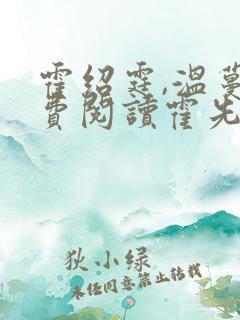 霍绍霆,温蔓
費閱讀霍先
狄小绿
未经同意禁止转载